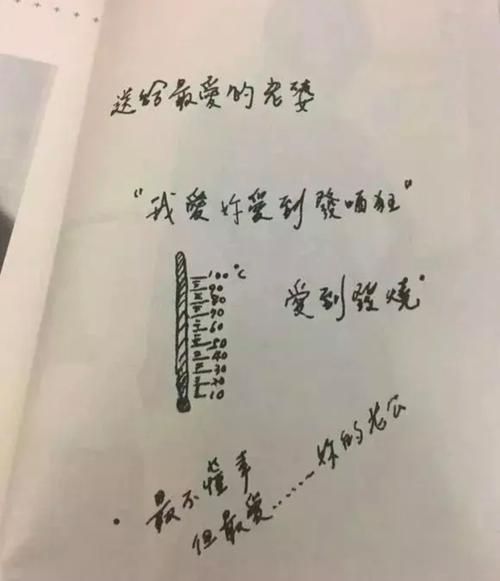 送給最愛的老婆
"我愛妳愛到發哂狂"
100 °C
90
80
70
60
50
40
30
20
10
愛到發燒"
最不懂事
但最愛......妳的老公